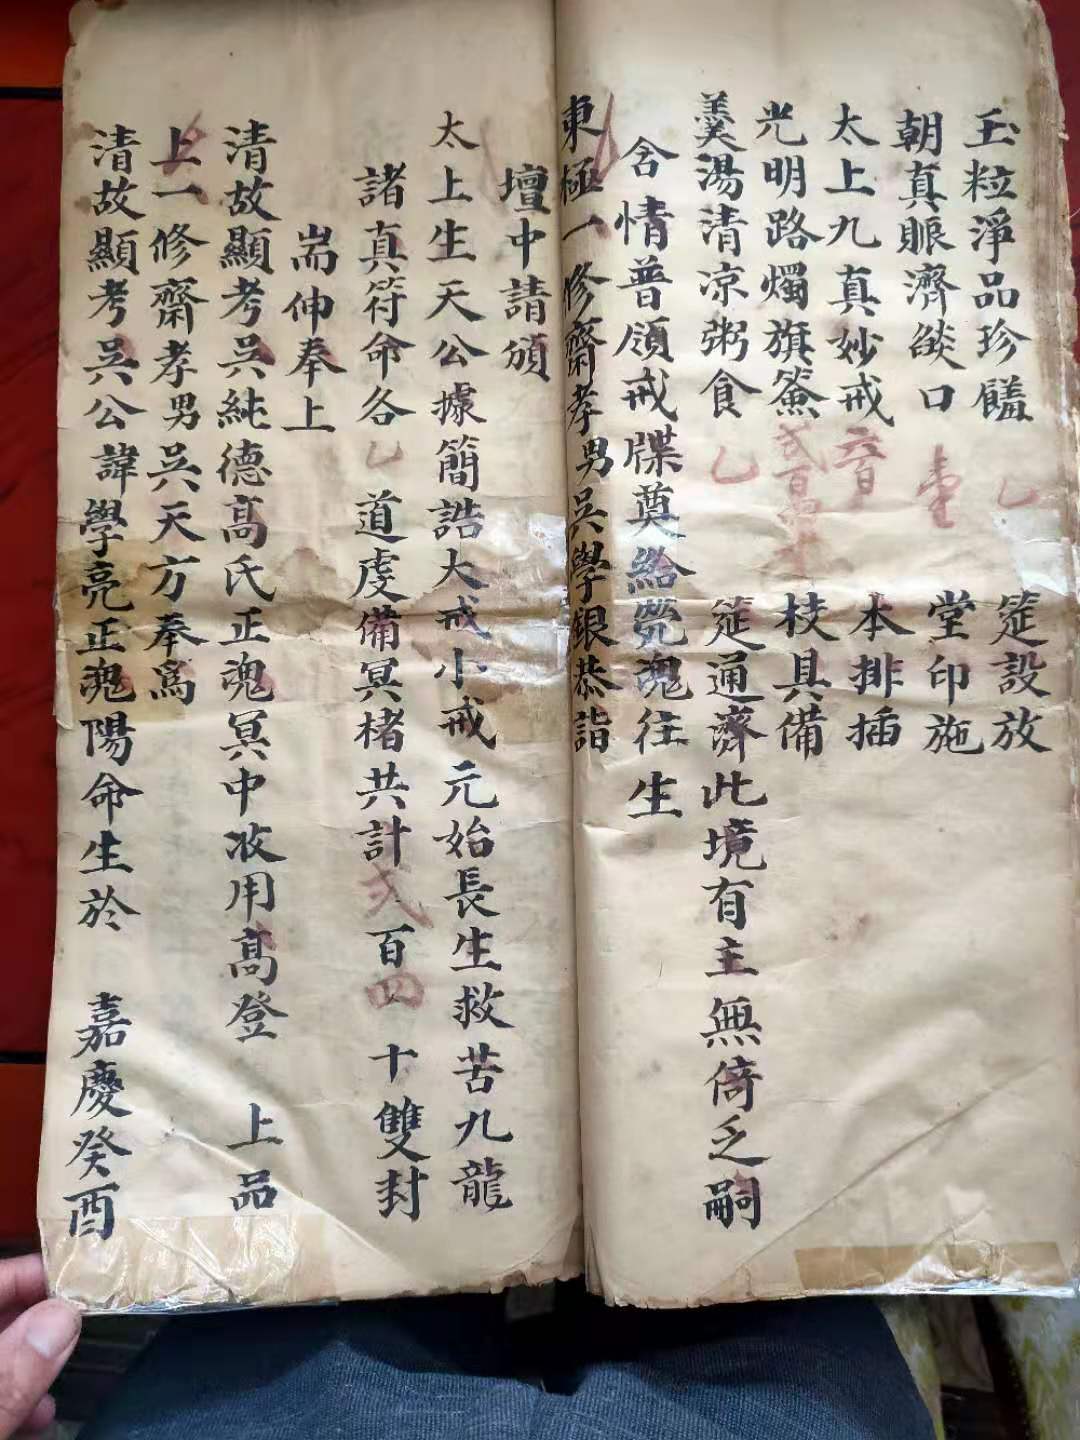 玉粒淨品珍饈乙筵設放
朝真賑濟燄口壹堂印施
太上九真妙戒音本排插
光明路燭旗䈴弍百四十枝具備
羹湯清凉粥食乙筵通濟此境有主無倚乏嗣
含情普領戒牒奠給㷀魂往生
東極一修齋孝男吳學銀恭詣
壇中請頒
太上生天公據簡誥大戒小戒元始長生救苦九龍
諸真符命各乙道虔備冥楮共計弍百四十雙封
耑伸奉上
清故顯考吳純德高氏正魂冥中收用高登上品
上一修齋孝男吳天方奉爲
清故顯考吳公諱學亮正魂陽命生於嘉慶癸酉